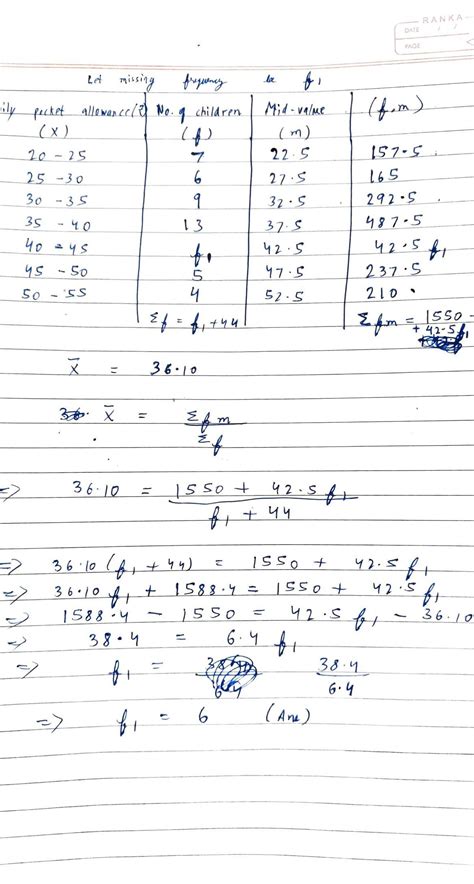 RANKA
DATE / /
PAGE
Let missing frequency be f₁
ily pocket allowance(₹) No. of children Mid-value (f.m)
(X) (f) (m)
20 - 25 7 22.5 157.5
25 - 30 6 27.5 165
30 - 35 9 32.5 292.5
35 - 40 13 37.5 487.5
40 - 45 f₁ 42.5 42.5 f₁
45 - 50 5 47.5 237.5
50 - 55 4 52.5 210
Σf = f₁ + 44 Σfm = 1550
+ 42.5f₁
X̄ = 36.10
X̄ = Σfm / Σf
=> 36.10 = 1550 + 42.5 f₁ / f₁ + 44
=> 36.10 (f₁ + 44) = 1550 + 42.5 f₁
=> 36.10 f₁ + 1588.4 = 1550 + 42.5 f₁
=> 1588.4 - 1550 = 42.5 f₁ - 36.10
=> 38.4 = 6.4 f₁
=> f₁ = 38.4 / 6.4
=> f₁ = 6 (Ans)